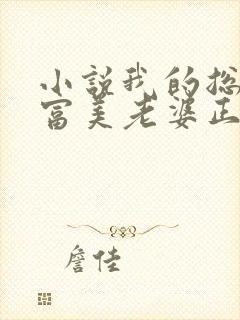 小说我的总
富美老婆正
詹佳